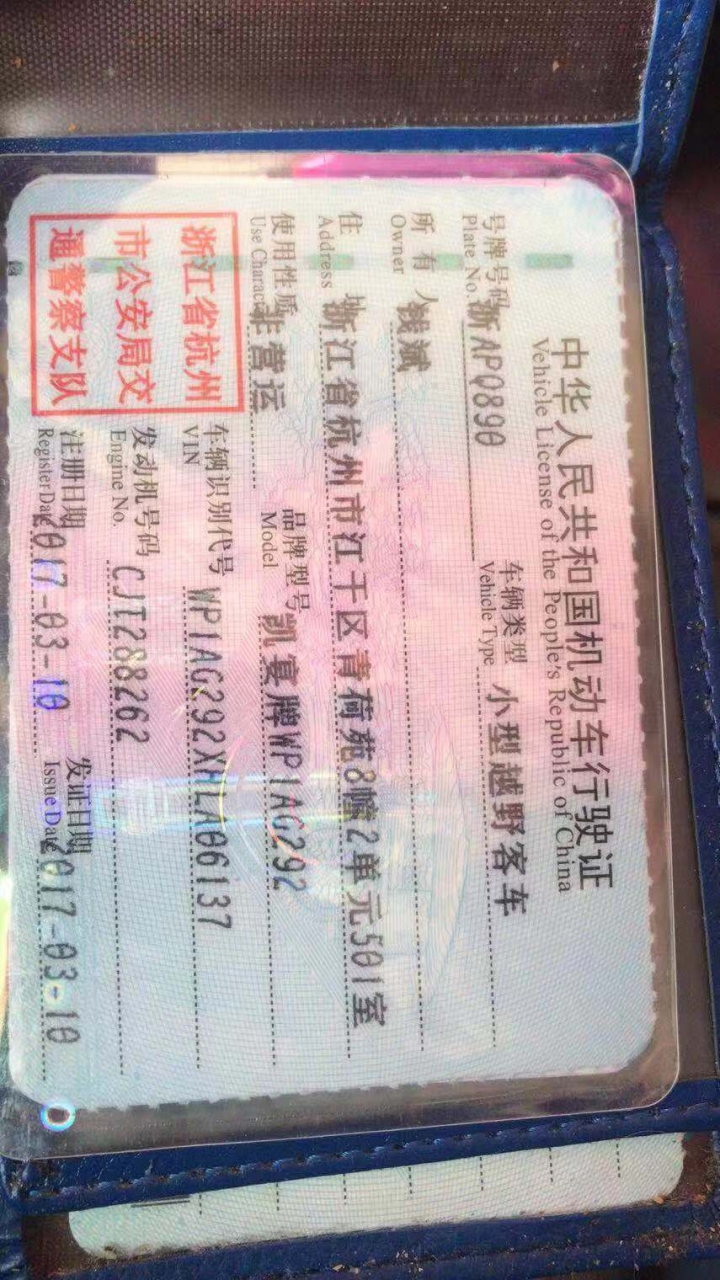 中华人民共和国机动车行驶证
Vehicle License of the People's Republic of China
号牌号码 浙APQ890 车辆类型 小型越野客车
Plate No. Vehicle Type
所有人 钱斌
Owner
住址 浙江省杭州市江干区青荷苑8幢2单元501室
Address
使用性质 非营运 品牌型号 凯宴牌WP1AG292
Use Character Model
浙江省杭州
市公安局交
通警察支队
车辆识别代号 WP1AG292XHLA06137
VIN
发动机号码 CJT288262
Engine No.
注册日期 2017-03-10 发证日期 2017-03-10
Register Date Issue Date